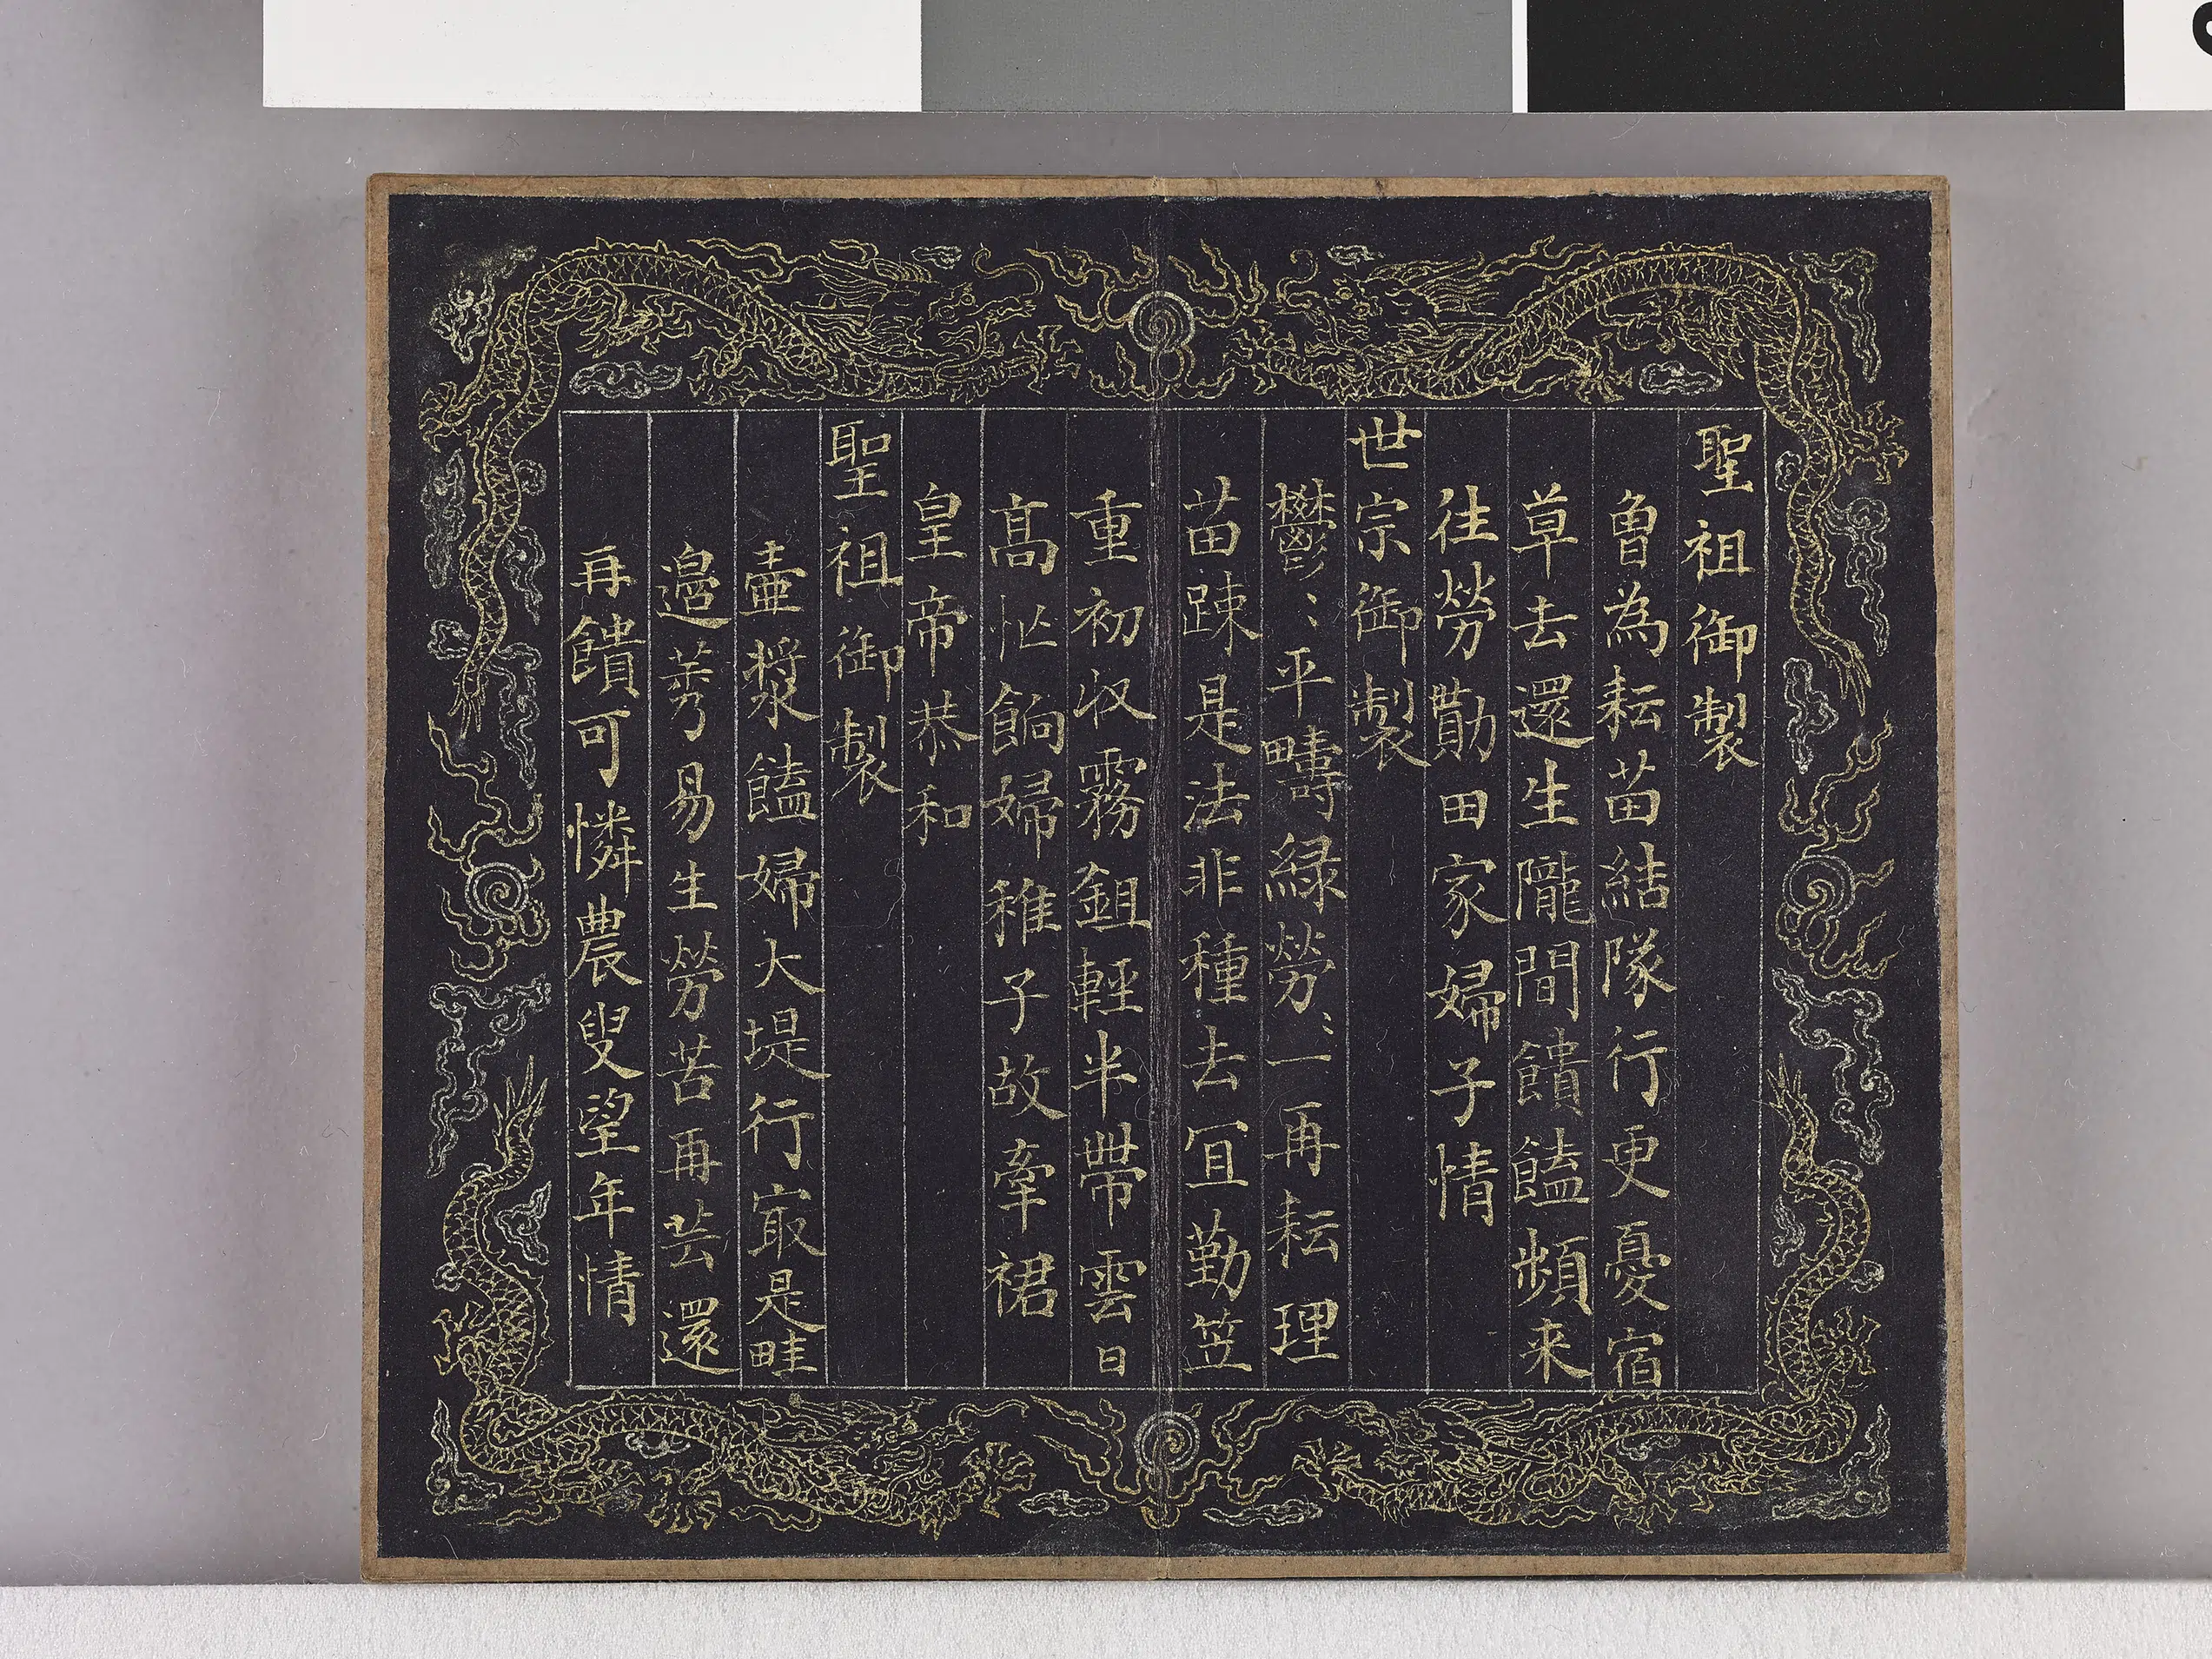 聖祖御製
曾為耘苗結隊行更憂宿
草去還生隴間饋饁頻来
往勞勩田家婦子情
世宗御製
鬱〻平疇緑勞〻一再耘理
苗踈是法非種去冝勤笠
重初收霧鉏輕半帶雲日
髙忙餉婦稚子故牽裙
皇帝恭和
聖祖御製
壷漿饁婦大堤行㝡是畦
邉莠易生勞苦再芸還
再饋可憐農叟望年情